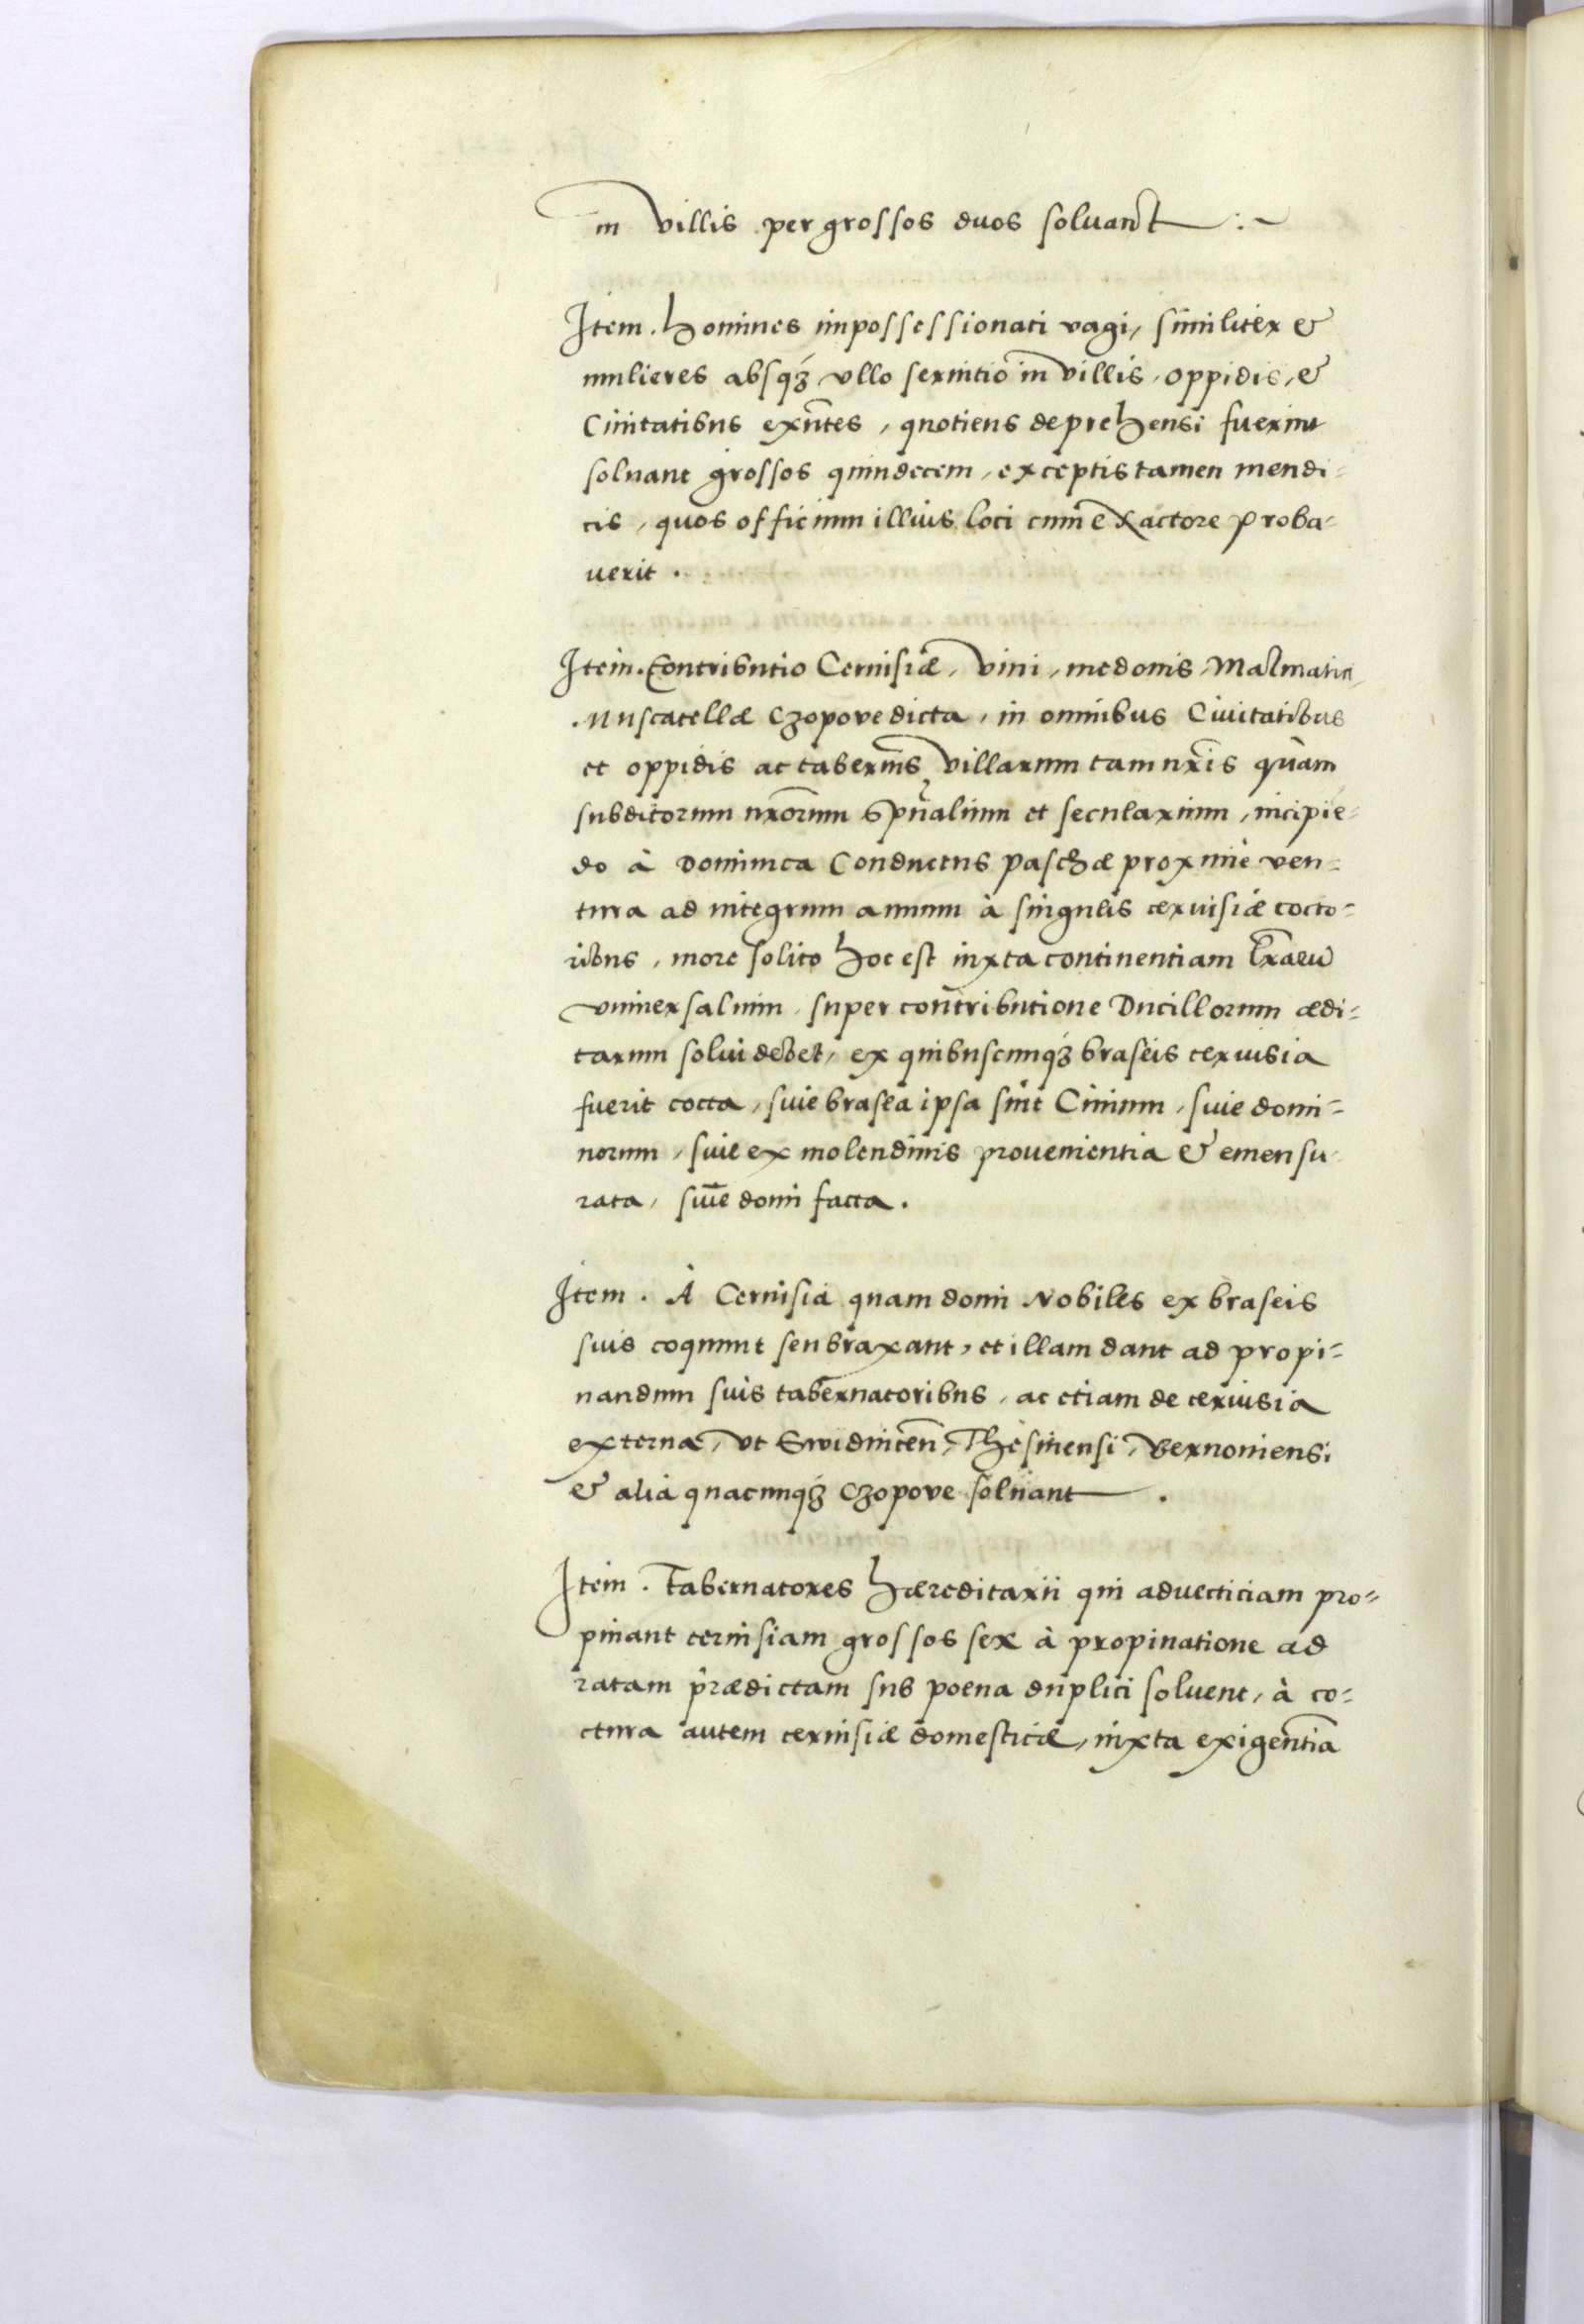 in villis per grossos duos soluant :~
Item. homines impossessionati vagi, similiter &
mulieres absq₃ vllo seruitio in villis, oppidis, &
Ciuitatibus exñtes, quotiens deprehensi fuerint
soluant grossos quindecem, exceptis tamen mendi=
cis, quos officium illius loci cum exactore proba=
uerit.
Item. Contributio Ceruisiæ, vini, medonis, Malmatiæ
Muscatellæ Czopove dicta, in omnibus Ciuitatibus
et oppidis ac tabernis villarum tam nr̃is quàm
subditorum nr̃orum Spũalium et secularium, incipiē=
do à Dominica Conductus paschæ proximè ven=
tura ad integrum annum à singulis ceruisiæ cocto=
ribus, more solito hoc est iuxta continentiam Lr̃arū
vniuersalium super contributione Ducillorum ædi=
tarum solui debet, ex quibuscunq₃ braseis ceruisia
fuerit cocta, siue brasea ipsa sint Ciuium, siue domi=
norum, siue ex molendinis prouenientia & emensu
rata, siue domi facta.
Item. À Ceruisia quam domi Nobiles ex braseis
suis coquunt seu braxant, et illam dant ad propi=
nandum suis tabernatoribus, ac etiam de ceruisia
externa, vt Swidnicen̄, Thesinensi, Vernoniensi
& alia quacunq₃ Czopove soluant.
Item. Tabernatores hæreditarii qui aduecticiam pro=
pinant ceruisiam grossos sex à propinatione ad
ratam prædictam sub poena duplici soluent, à co=
ctura autem ceruisiæ domesticæ, iuxta exigentiā